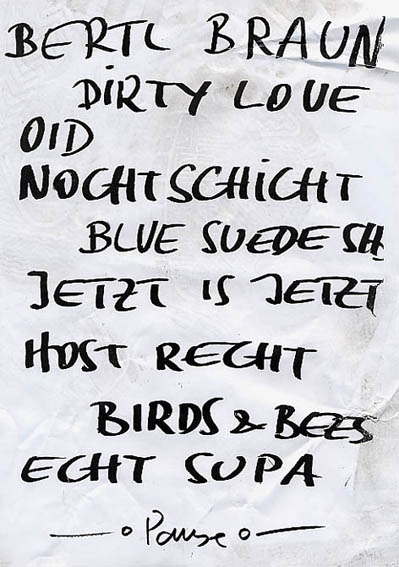 BERTL BRAUN
DIRTY LOVE
OID
NOCHTSCHICHT
BLUE SUEDE SH
JETZT IS JETZT
HOST RECHT
BIRDS & BEES
ECHT SUPA
Pause